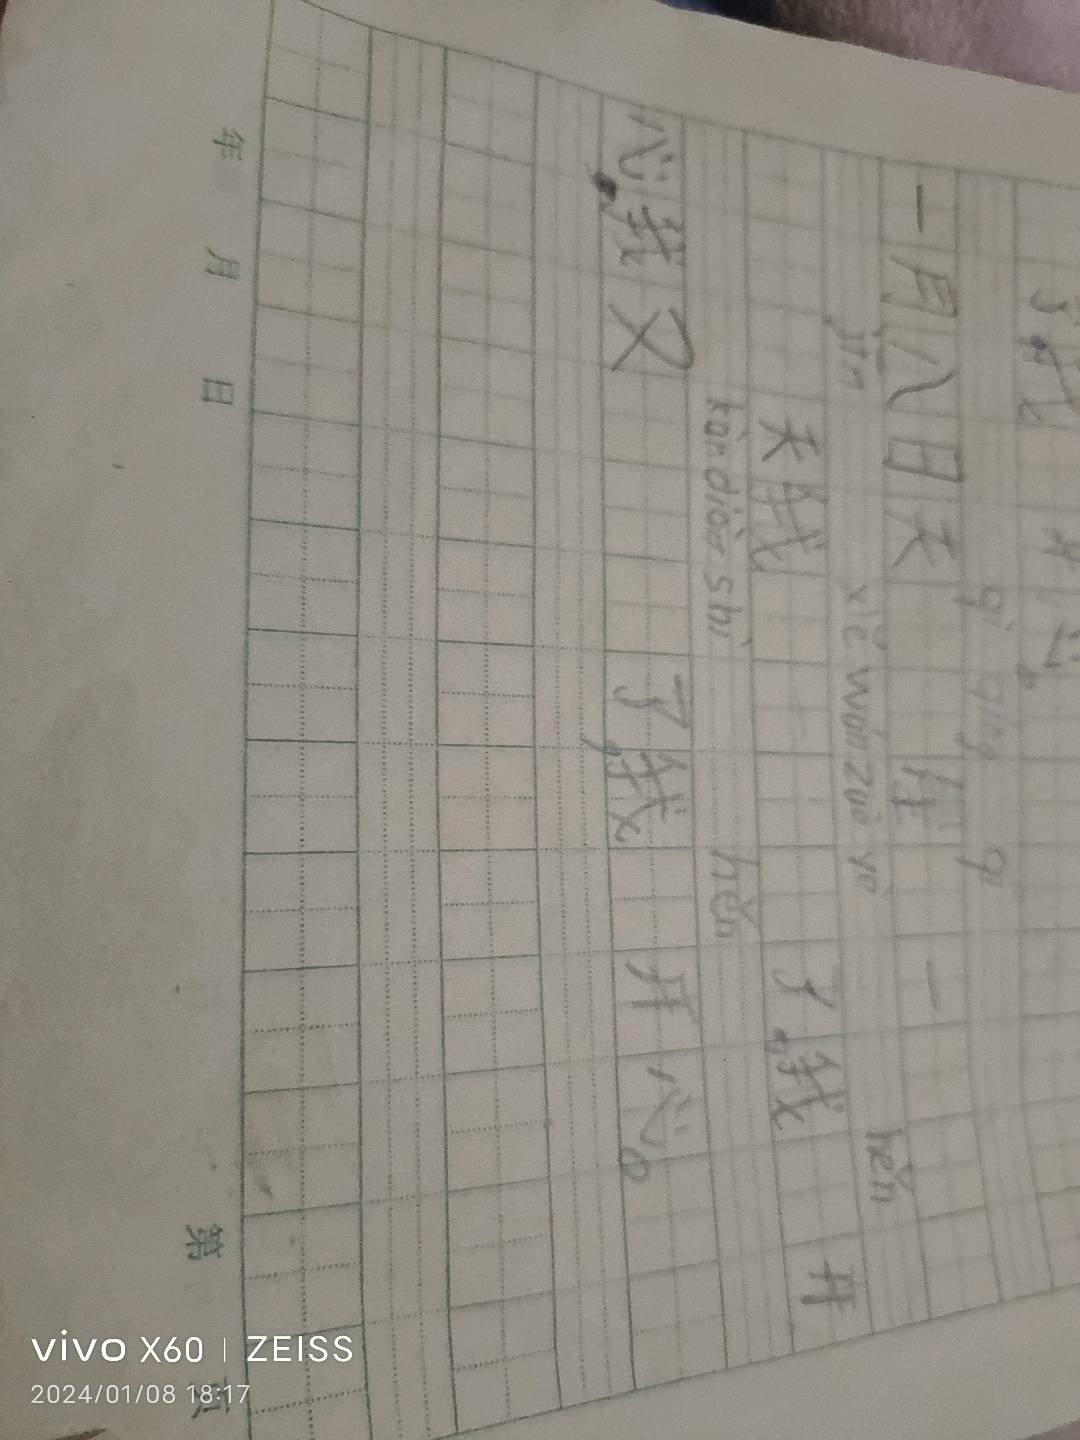 了我 开心。
qì qíng qī
一月八日天 星 一
jīn xiě wán zuò yè hěn
天我 了，我 开
kàn diàn shì hěn
心，我又 了，我 开心。
年 月 日 第 页
vivo X60 | ZEISS
2024/01/08 18:17